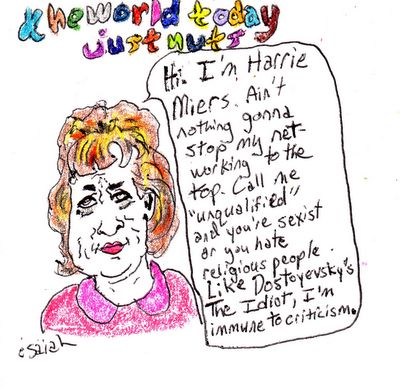 the world today
just nuts
Hi. I'm Harrie
Miers. Ain't
nothing gonna
stop my net-
working to the
top. Call me
"unqualified"
and you're sexist
or you hate
religious people.
Like Dostoyevsky's
The Idiot, I'm
immune to criticism.
© Isaiah